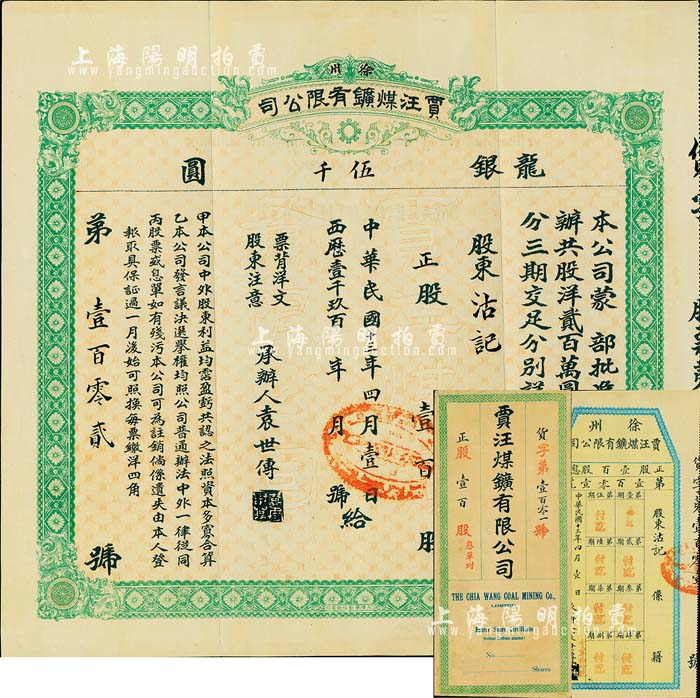 上海陽明拍賣
www.yangmingauction.com
徐州
賈汪煤鑛有限公司
龍銀 伍千 圓
本公司蒙 部批准
辦共股洋貳百萬圓
分三期交足分別
股東沽記
正股 壹百 股
中華民國十三年四月壹日給
西歷壹千玖百 年 月 號
票背洋文
股東注意
承辦人袁世傳
甲本公司中外股東利益均霑盈虧共認之法照資本多寡合算
乙本公司發言議決選舉權均照公司普通辦法中外一律從同
丙股票或息單如有殘污本公司可為註銷倘係遺失由本人登
報取具保証過一月後始可照換每票繳洋四角
第壹百零貳號
貨字第壹百零 號
賈汪煤鑛有限公司
正股 壹百 股 息單附
THE CHIA WANG COAL MINING Co.,
LIMITED
No. Shares
徐州
賈汪煤鑛有限公司
正股壹百股息
股東沽記 係 籍
第壹期 第伍期
第貳期 第陸期
第叁期 第柒期
第肆期 第捌期
付訖
中華民國十三年四月壹日
上海陽明拍賣
www.yangmingauction.com